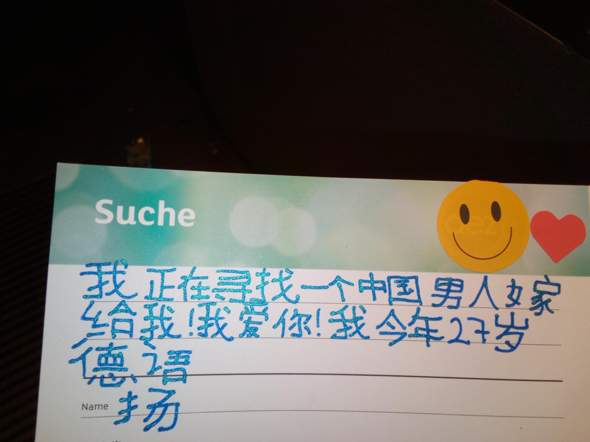 Suche
我正在寻找一个中国男人女家
给我!我爱你!我今年27岁
德语
Name 扬